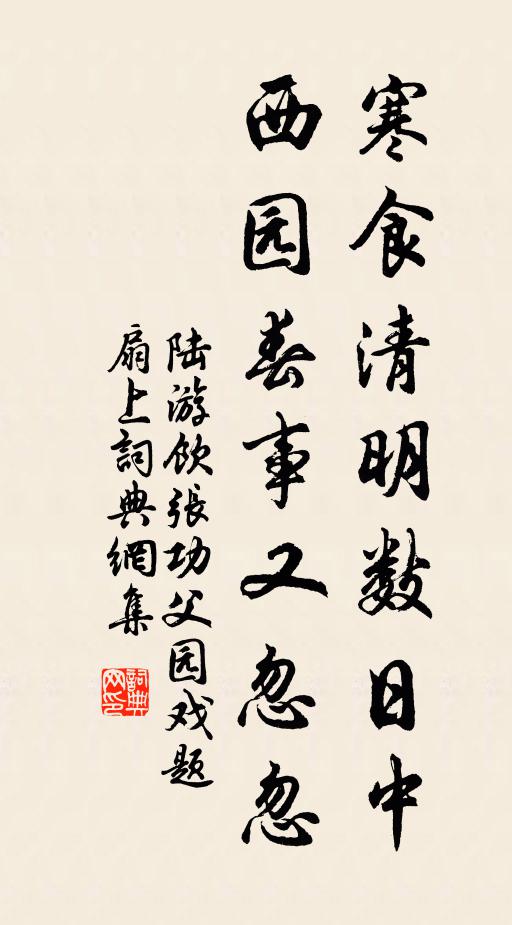 寒食清明数日中
西园春事又忽忽
陆游饮张功父园戏题
扇上詞典網集
詞典网印